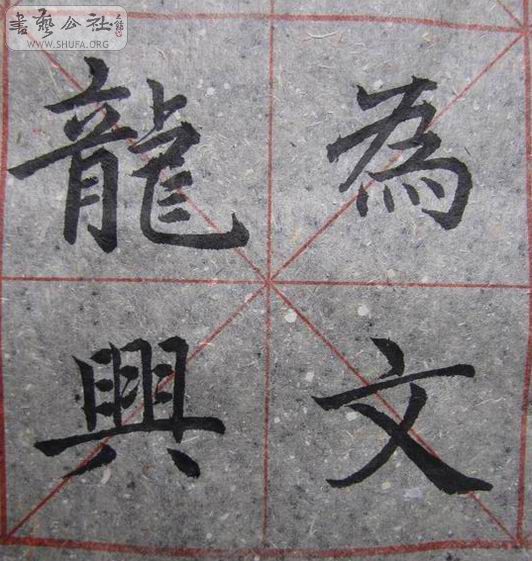 為文
龍興
書藝公社
WWW.SHUFA.ORG